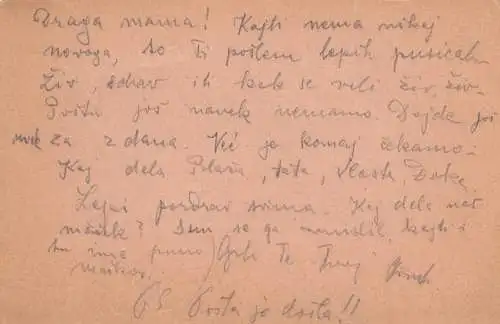 Draga mama! Kajti nema nikaj
novoga, to Ti pošlem lepih pusica.
Živ, zdrav ili kak se veli živ, živ.
Poštu još navek nemamo. Dojde još
za z dana. Već je komaj čekamo.
Kaj dela , tata, Vlasta,
Lepi pozdrav svima. Kaj dela naš
? Sem se ga , kajti i
tu ima puno Grli Te Tvoj
mačkov.
PS Pošta je došla!!